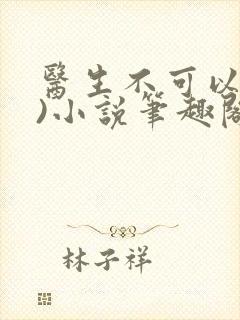 醫生不可以
)小説筆趣閣
林子祥